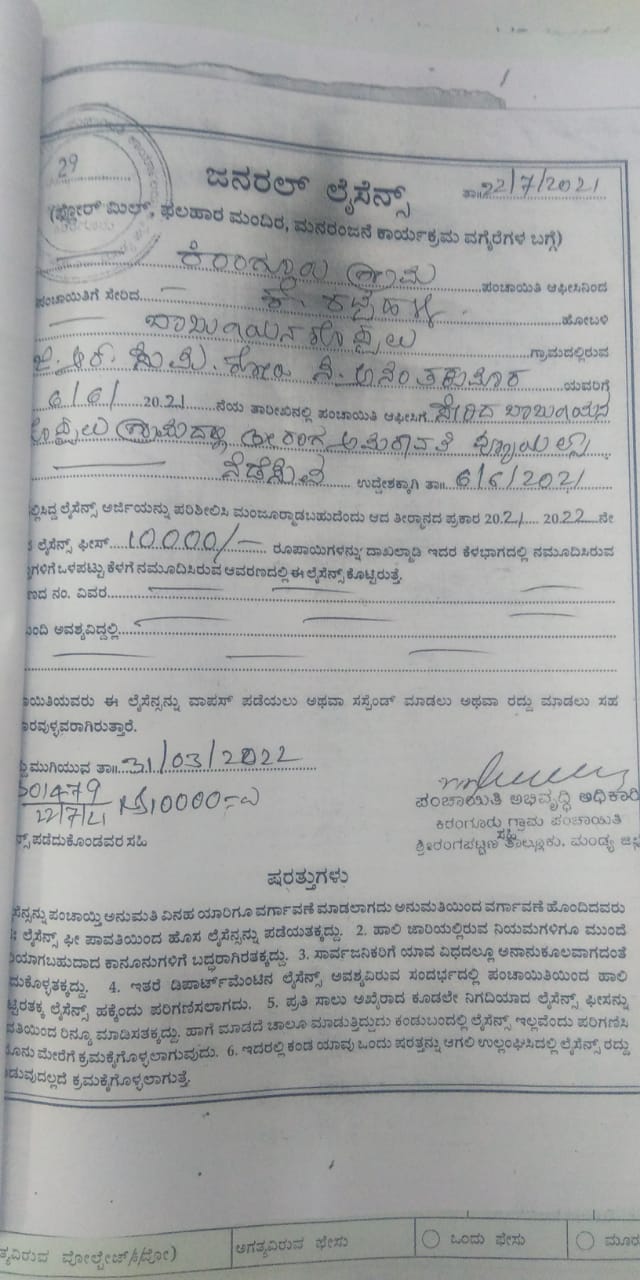 29
ಜನರಲ್ ಲೈಸೆನ್ಸ್
ತಾ॥ 22/7/2021
(ಫ್ಲೋರ್ ಮಿಲ್, ಫಲಹಾರ ಮಂದಿರ, ಮನರಂಜನೆ ಕಾರ್ಯಕ್ರಮ ವಗೈರೆಗಳ ಬಗ್ಗೆ)
ಗ್ರಾಮ ಪಂಚಾಯಿತಿ ಆಫೀಸಿನಿಂದ
ಪಂಚಾಯಿತಿಗೆ ಸೇರಿದ ಹೋಬಳಿ
ಗ್ರಾಮದಲ್ಲಿರುವ
ಯವರಿಗೆ
6/6/ 2021 ನೆಯ ತಾರೀಖಿನಲ್ಲಿ ಪಂಚಾಯಿತಿ ಆಫೀಸಿಗೆ ಸೇರಿದ
ಗ್ರಾಮದಲ್ಲಿ
ನೆಡೆಸುವ ಉದ್ದೇಶಕ್ಕಾಗಿ ತಾ॥ 6/6/2021
ಲ್ಲಿಸಿದ್ದ ಲೈಸೆನ್ಸ್ ಅರ್ಜಿಯನ್ನು ಪರಿಶೀಲಿಸಿ ಮಂಜೂರ್ಮಾಡಬಹುದೆಂದು ಆದ ತೀರ್ಮಾನದ ಪ್ರಕಾರ 2021 2022 ನೇ
ಲೈಸೆನ್ಸ್ ಫೀಸ್ 10000/- ರೂಪಾಯಿಗಳನ್ನು ದಾಖಲ್ಮಾಡಿ ಇದರ ಕೆಳಭಾಗದಲ್ಲಿ ನಮೂದಿಸಿರುವ
ಗಳಿಗೆ ಒಳಪಟ್ಟು ಕೆಳಗೆ ನಮೂದಿಸಿರುವ ಆವರಣದಲ್ಲಿ ಈ ಲೈಸೆನ್ಸ್ ಕೊಟ್ಟಿರುತ್ತೆ.
ಣದ ನಂ. ವಿವರ
ಬಂದಿ ಅವಶ್ಯವಿದ್ದಲ್ಲಿ
ಾಯಿತಿಯವರು ಈ ಲೈಸೆನ್ಸನ್ನು ವಾಪಸ್ ಪಡೆಯಲು ಅಥವಾ ಸಸ್ಪೆಂಡ್ ಮಾಡಲು ಅಥವಾ ರದ್ದು ಮಾಡಲು ಸಹ
ಾರವುಳ್ಳವರಾಗಿರುತ್ತಾರೆ.
ಮುಗಿಯುವ ತಾ॥ 31/03/2022
501479
22/7/21
ಪಂಚಾಯಿತಿ ಅಭಿವೃದ್ಧಿ ಅಧಿಕಾರಿ
ಕಿರಂಗೂರು ಗ್ರಾಮ ಪಂಚಾಯಿತಿ
ಸಹಿ
ಶ್ರೀರಂಗಪಟ್ಟಣ ತಾಲ್ಲೂಕು, ಮಂಡ್ಯ ಜಿಲ್
ನ್ಸ್ ಪಡೆದುಕೊಂಡವರ ಸಹಿ
ಷರತ್ತುಗಳು
ಸೆನ್ಸನ್ನು ಪಂಚಾಯ್ತಿ ಅನುಮತಿ ವಿನಹ ಯಾರಿಗೂ ವರ್ಗಾವಣೆ ಮಾಡಲಾಗದು ಅನುಮತಿಯಿಂದ ವರ್ಗಾವಣೆ ಹೊಂದಿದವರು
ಲೈಸೆನ್ಸ್ ಫೀ ಪಾವತಿಯಿಂದ ಹೊಸ ಲೈಸೆನ್ಸನ್ನು ಪಡೆಯತಕ್ಕದ್ದು. 2. ಹಾಲಿ ಜಾರಿಯಲ್ಲಿರುವ ನಿಯಮಗಳಿಗೂ ಮುಂದೆ
ರಿಯಾಗಬಹುದಾದ ಕಾನೂನುಗಳಿಗೆ ಬದ್ಧರಾಗಿರತಕ್ಕದ್ದು. 3. ಸಾರ್ವಜನಿಕರಿಗೆ ಯಾವ ವಿಧದಲ್ಲೂ ಅನಾನುಕೂಲವಾಗದಂತೆ
ದುಕೊಳ್ಳತಕ್ಕದ್ದು. 4. ಇತರೆ ಡಿಪಾರ್ಟ್‌ಮೆಂಟಿನ ಲೈಸೆನ್ಸ್ ಅವಶ್ಯವಿರುವ ಸಂದರ್ಭದಲ್ಲಿ ಪಂಚಾಯಿತಿಯಿಂದ ಹಾಲಿ
ಟ್ಟಿರತಕ್ಕ ಲೈಸೆನ್ಸ್ ಹಕ್ಕೆಂದು ಪರಿಗಣಿಸಲಾಗದು. 5. ಪ್ರತಿ ಸಾಲು ಅಖೈರಾದ ಕೂಡಲೇ ನಿಗದಿಯಾದ ಲೈಸೆನ್ಸ್ ಫೀಸನ್ನು
ವತಿಯಿಂದ ರಿನ್ಯೂ ಮಾಡಿಸತಕ್ಕದ್ದು. ಹಾಗೆ ಮಾಡದೆ ಚಾಲೂ ಮಾಡುತ್ತಿದ್ದುದು ಕಂಡುಬಂದಲ್ಲಿ ಲೈಸೆನ್ಸ್ ಇಲ್ಲವೆಂದು ಪರಿಗಣಿಸಿ
ನೂನು ಮೇರೆಗೆ ಕ್ರಮಕೈಗೊಳ್ಳಲಾಗುವುದು. 6. ಇದರಲ್ಲಿ ಕಂಡ ಯಾವು ಒಂದು ಷರತ್ತನ್ನು ಆಗಲಿ ಉಲ್ಲಂಘಿಸಿದಲ್ಲಿ ಲೈಸೆನ್ಸ್ ರದ್ದು
ಡುವುದಲ್ಲದೆ ಕ್ರಮಕೈಗೊಳ್ಳಲಾಗುತ್ತೆ.
ತ್ಯವಿರುವ ವೋಲ್ಟೇಜ್
ಅಗತ್ಯವಿರುವ ಫೇಸು
ಒಂದು ಫೇಸು
ಮೂರು